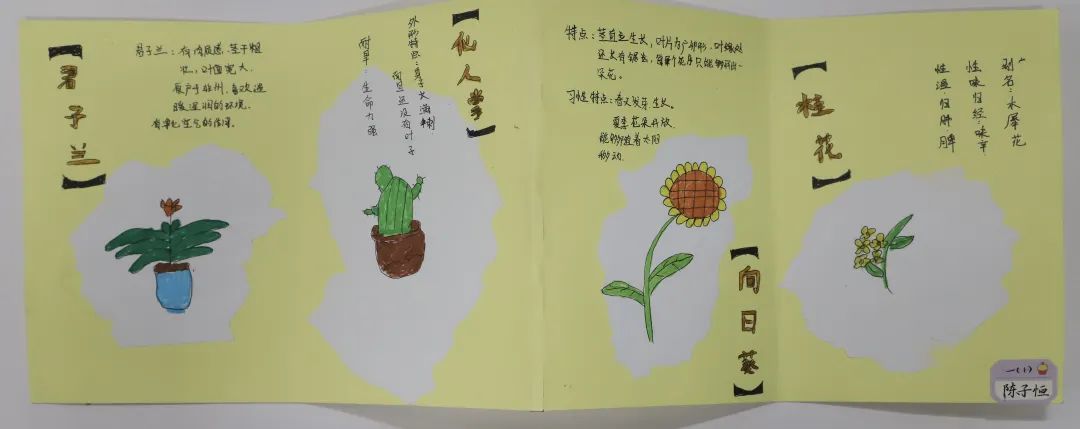 【君子兰】
君子兰：有肉质感、茎干粗
壮，叶面宽大．
原产于非州，喜欢温
暖湿润的环境．
【仙人掌】
外形特点：身子长满刺
而且还没有叶子
耐旱：生命力强
特点：茎直立生长，叶片为广卵形．叶缘处
还长有锯齿，每个花序只能够开出一
朵花。
习性特点：春天发芽生长。
夏季花朵开放
能够随着太阳
移动．
【向日葵】
【桂花】
别名：木犀花
性味归经：味辛
性温归肝．脾
一(1)
陈子恒